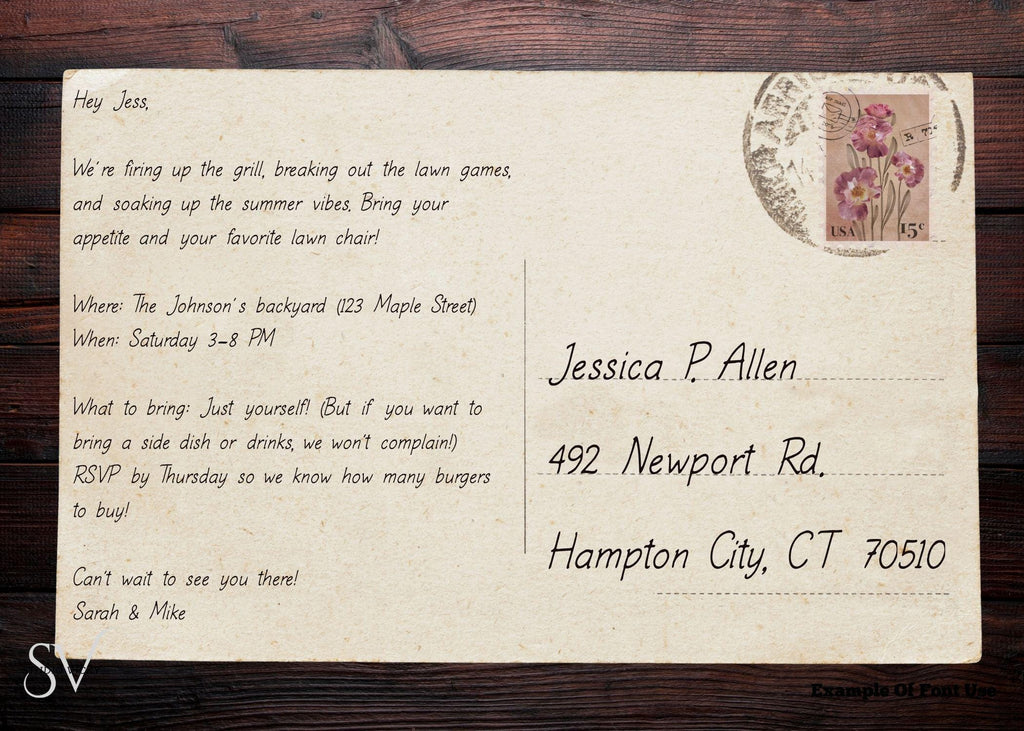 Hey Jess,
We're firing up the grill, breaking out the lawn games,
and soaking up the summer vibes. Bring your
appetite and your favorite lawn chair!
Where: The Johnson's backyard (123 Maple Street)
When: Saturday 3-8 PM
What to bring: Just yourself! (But if you want to
bring a side dish or drinks, we won't complain!)
RSVP by Thursday so we know how many burgers
to buy!
Can't wait to see you there!
Sarah & Mike
USA 15c
Jessica P. Allen
492 Newport Rd.
Hampton City, CT 70510
SV
Example Of Font Use